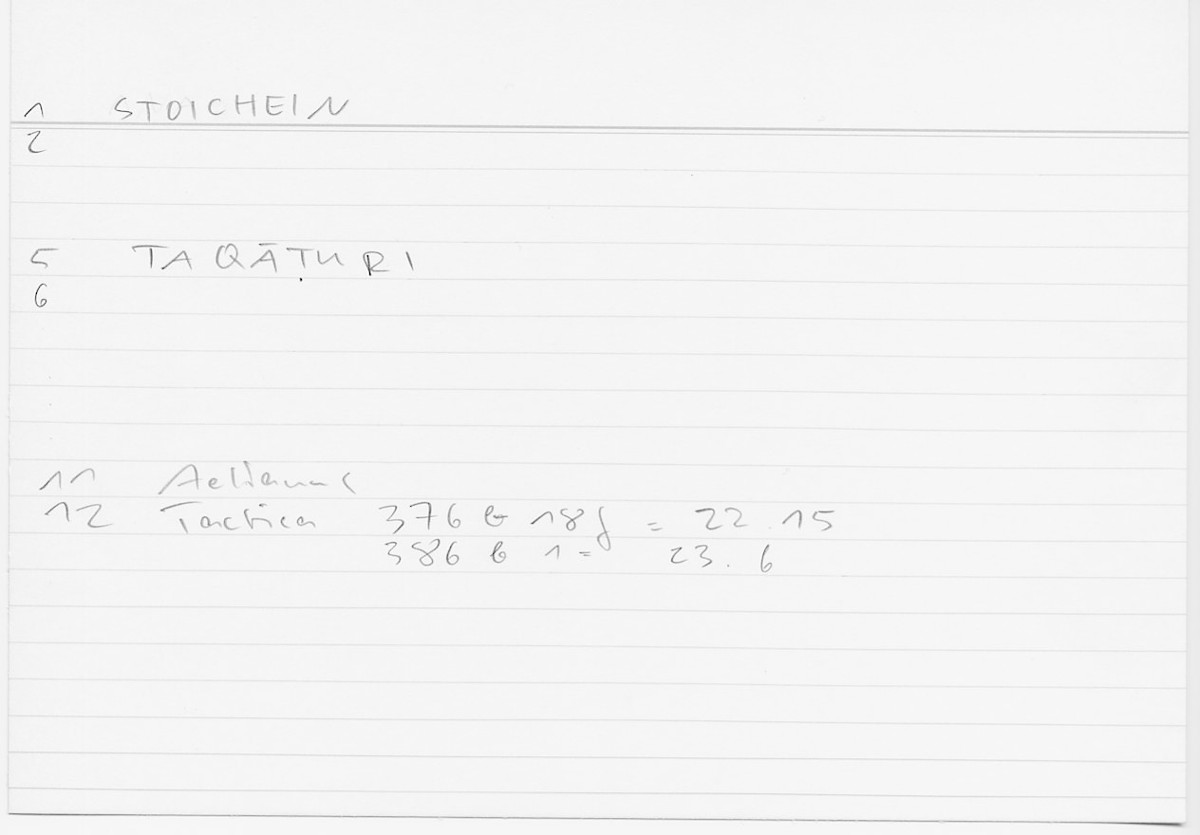 1 STOICHEIN
2
5 TAQĀṬURI
6
11 Aelianus
12 Tactica 376 b 18f = 22.15
386 b 1 = 23.6